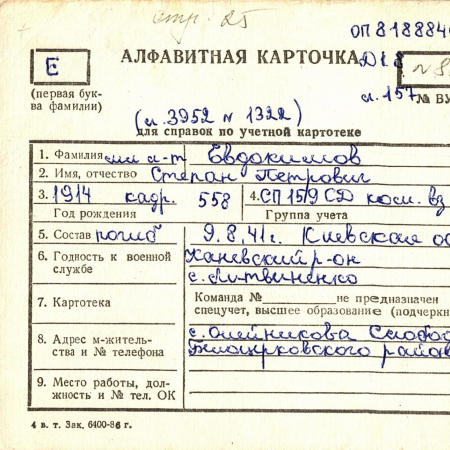 стр. 25
ОП 818884
Е
АЛФАВИТНАЯ КАРТОЧКА
(первая бук-
ва фамилии)
л. 157 № ВУ
(л. 3952 № 1322)
для справок по учетной картотеке
1. Фамилия мл л-т Евдокимов
2. Имя, отчество Степан Петрович
3. 1914 кадр. 558 4. СП 159 СД ком. вз
Год рождения Группа учета
5. Состав погиб 9.8.41г. Киевская об
6. Годность к военной Каневский р-он
службе с. Литвиненко
7. Картотека Команда № не предназначен
спецучет, высшее образование (подчеркн
8. Адрес м-житель- с. Олейникова Слобод
ства и № телефона Белоцерковского район
9. Место работы, дол-
жность и № тел. ОК
4 в. т. Зак. 6400-86 г.